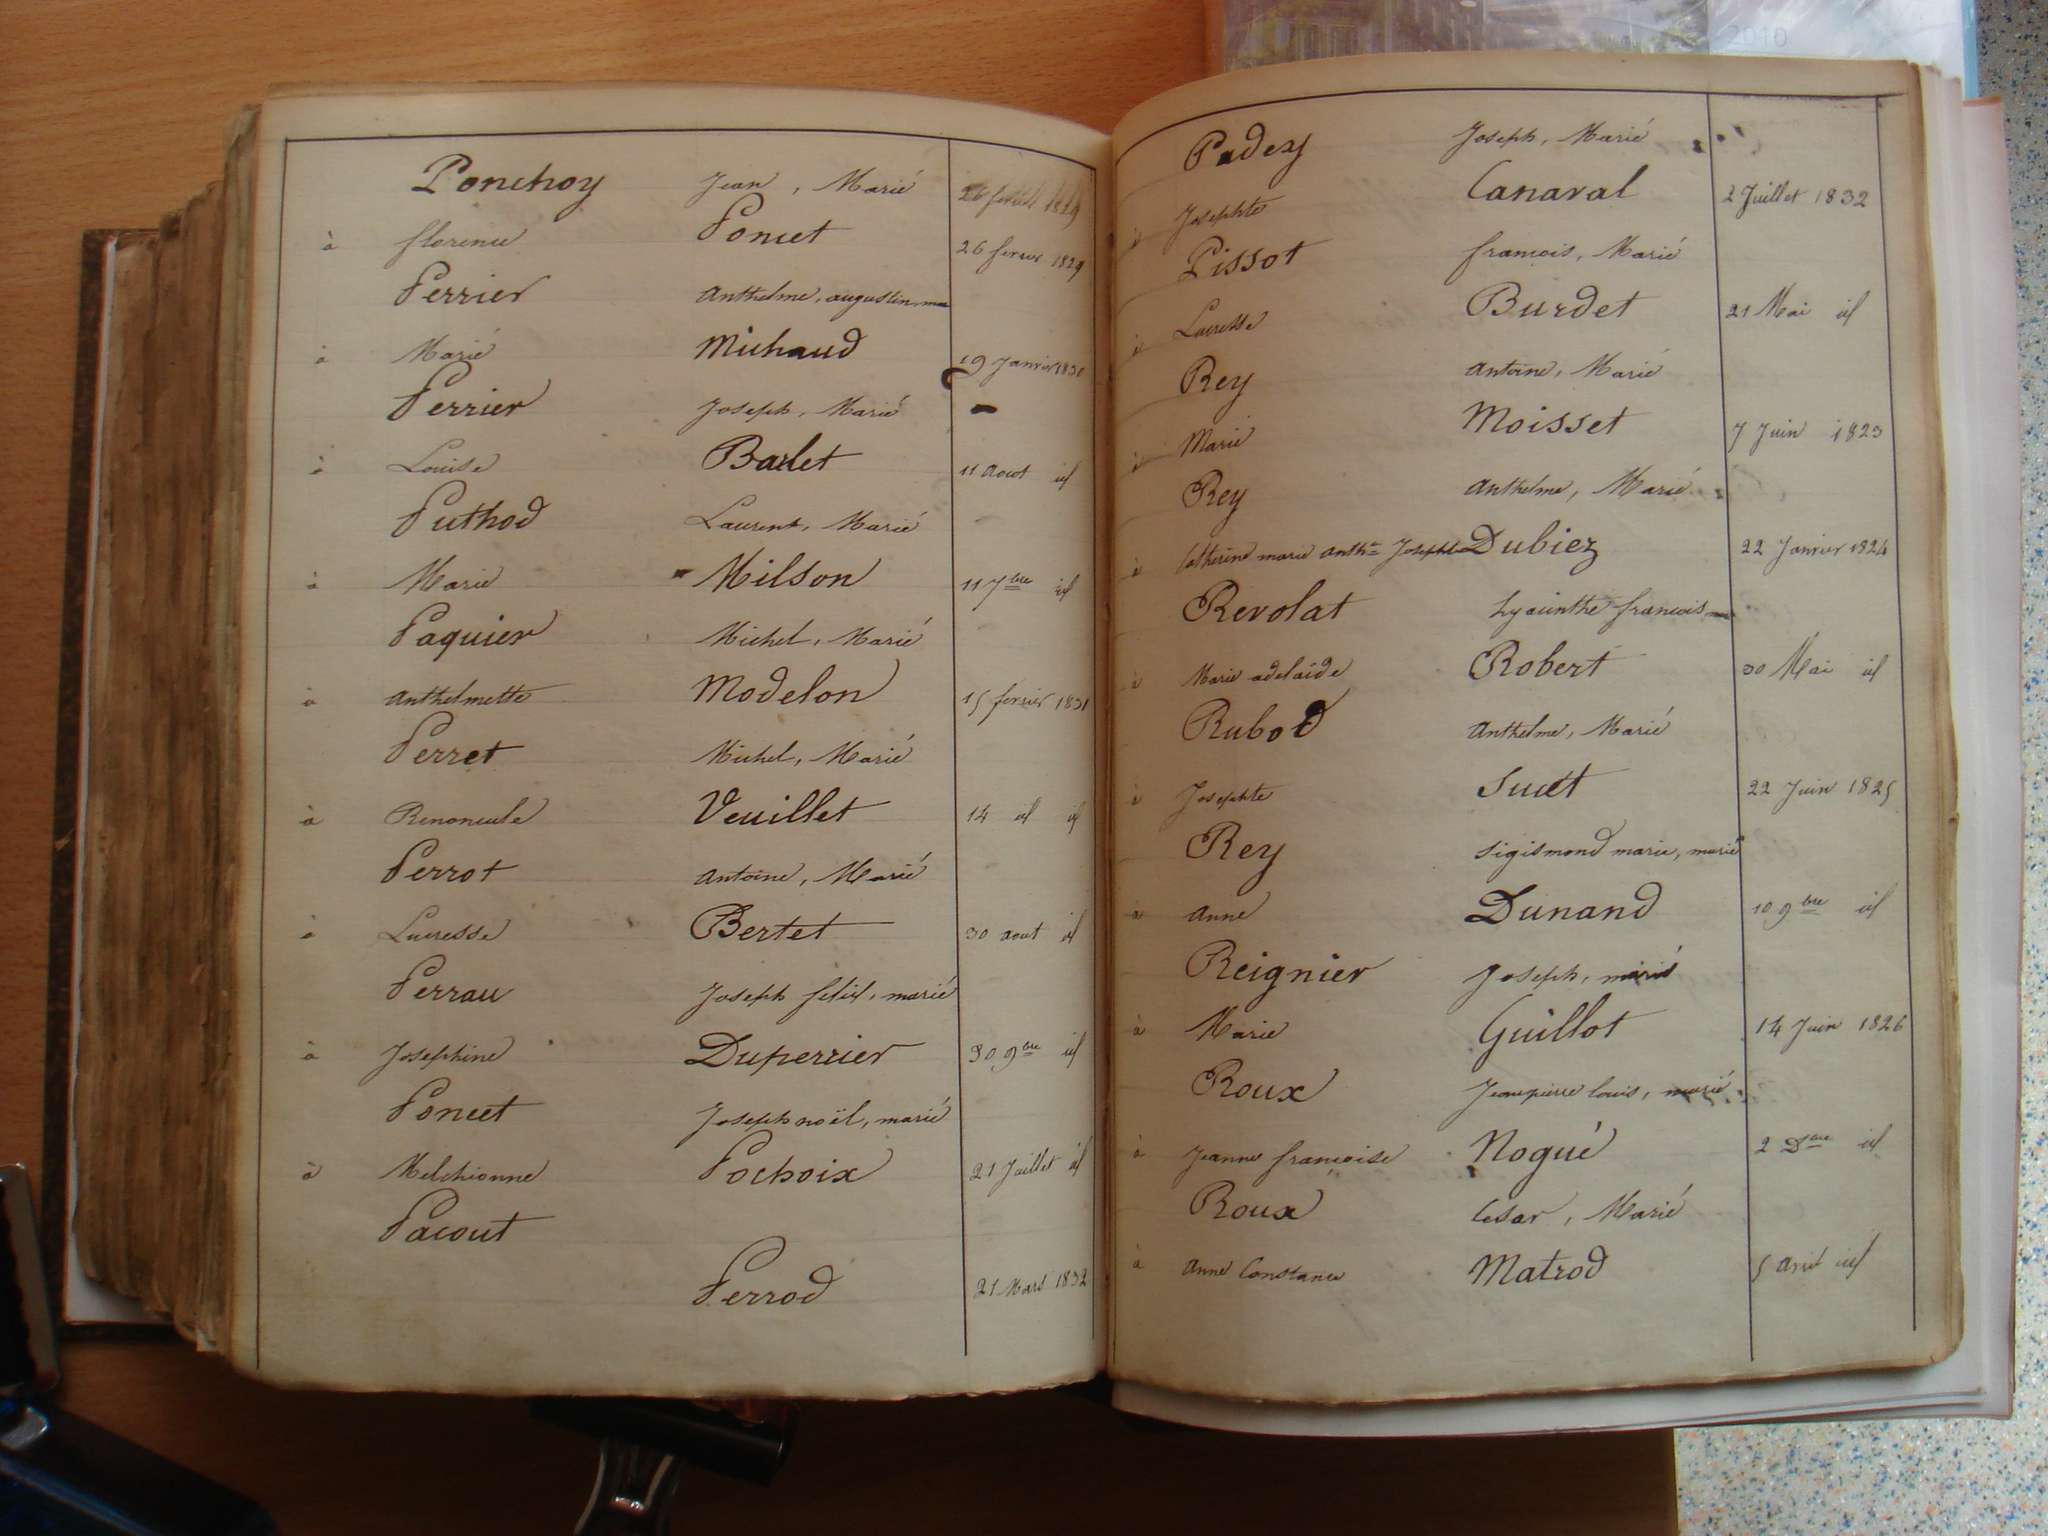 Ponchoy Jean, Marié
à florence Poncet 26 fevrier 1829
Perrier Anthelme, augustin,
à Marie Michaud 19 Janvier 1830
Perrier Joseph, Marié
à Louise Barlet 11 Aout id
Puthod Laurent, Marié
à Marie Milson 11 7bre id
Paquier Michel, Marié
à Anthelmette Modelon 15 fevrier 1831
Perret Michel, Marié
à Renoncule Veuillet 14 id id
Perrot Antoine, Marié
à Lucresse Bertet 30 aout id
Perrau Joseph felix, marié
à Josephine Duperrier 30 9bre id
Poncet Joseph noël, marié
à Melchionne Pochoix 21 Juillet id
Pacout
Perrod 21 Mars 1832
2010
Padey Joseph, Marié
à Josephte Canaval 2 Juillet 1832
Pissot francois, Marié
à Lucresse Burdet 21 Mai id
Rey Antoine, Marié
à Marie Moisset 7 Juin 1823
Rey Anthelme, Marié
à Catherine marie anthte Josephte Dubiez 22 Janvier 1824
Revolat hyacinthe francois
à Marie adelaïde Robert 30 Mai id
Rubod Anthelme, Marié
à Josephte Suet 22 Juin 1825
Rey Sigismond marie, marié
à Anne Dunand 10 9bre id
Reignier Joseph, marié
à Marie Guillot 14 Juin 1826
Roux Jeanpierre louis, marié
à Jeanne françoise Nogué 2 Dbre id
Roux Cesar, Marié
à Anne Constance Matrod 5 Avril id